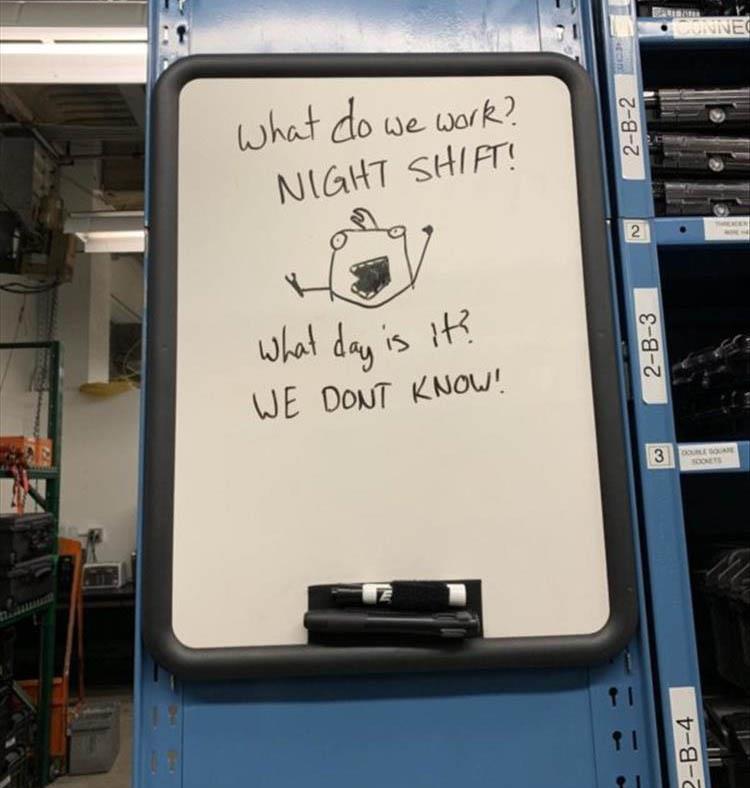 What do we work?
NIGHT SHIFT!
What day is it?
WE DONT KNOW!
2-B-2
2
2-B-3
3
DOUBLE SQUARE
SOCKETS
2-B-4